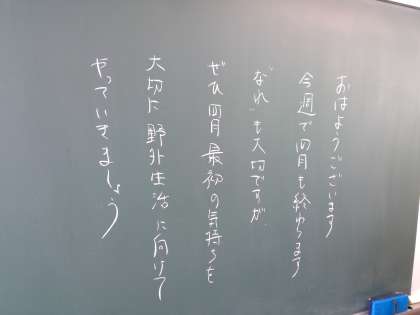 おはようございます
今週で四月も終わります
"なれ"も大切ですが、
ぜひ四月最初の気持ちを
大切に野外生活に向けて
やっていきましょう